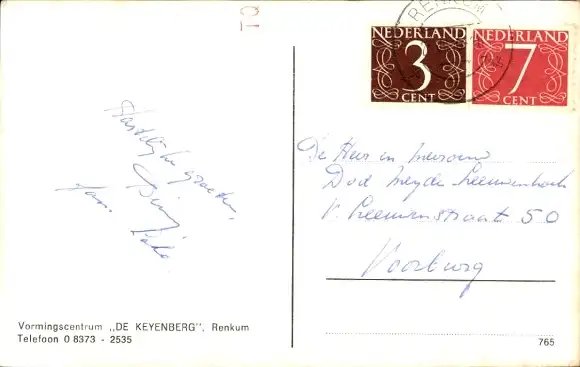 RENKUM
NEDERLAND
3
CENT
NEDERLAND
7
CENT
Hartelijke groeten,
De Heer en mevrouw
Dod
v. Leeuwenstraat 50
Voorburg
Vormingscentrum „DE KEYENBERG", Renkum
Telefoon 0 8373 - 2535
765